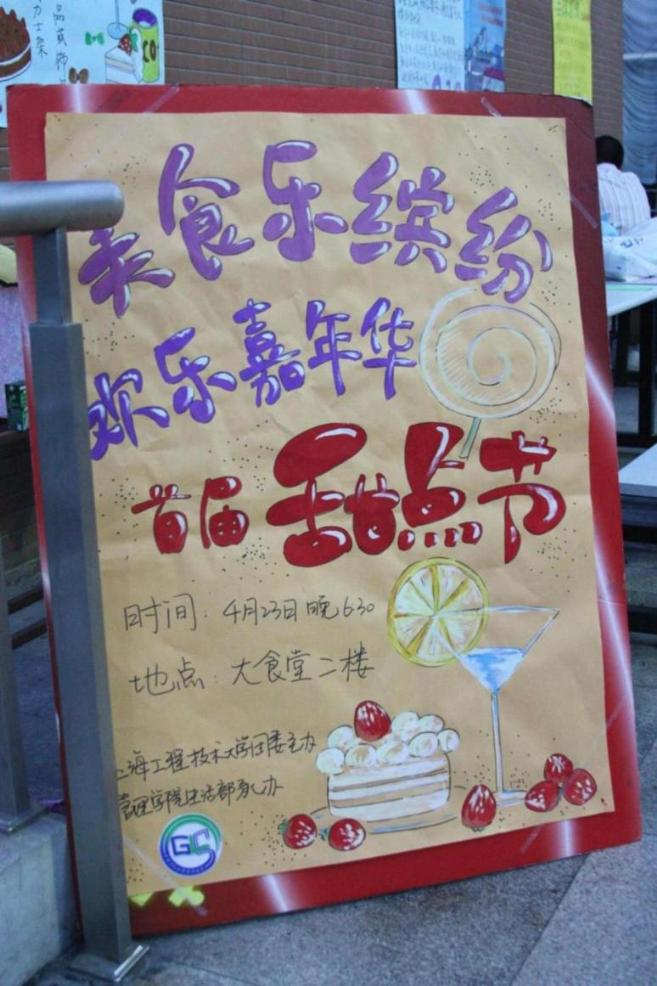 美食乐缤纷
欢乐嘉年华
首届甜点节
时间：4月23日晚6:30
地点：大食堂二楼
上海工程技术大学团委主办
管理学院生活部承办
GS